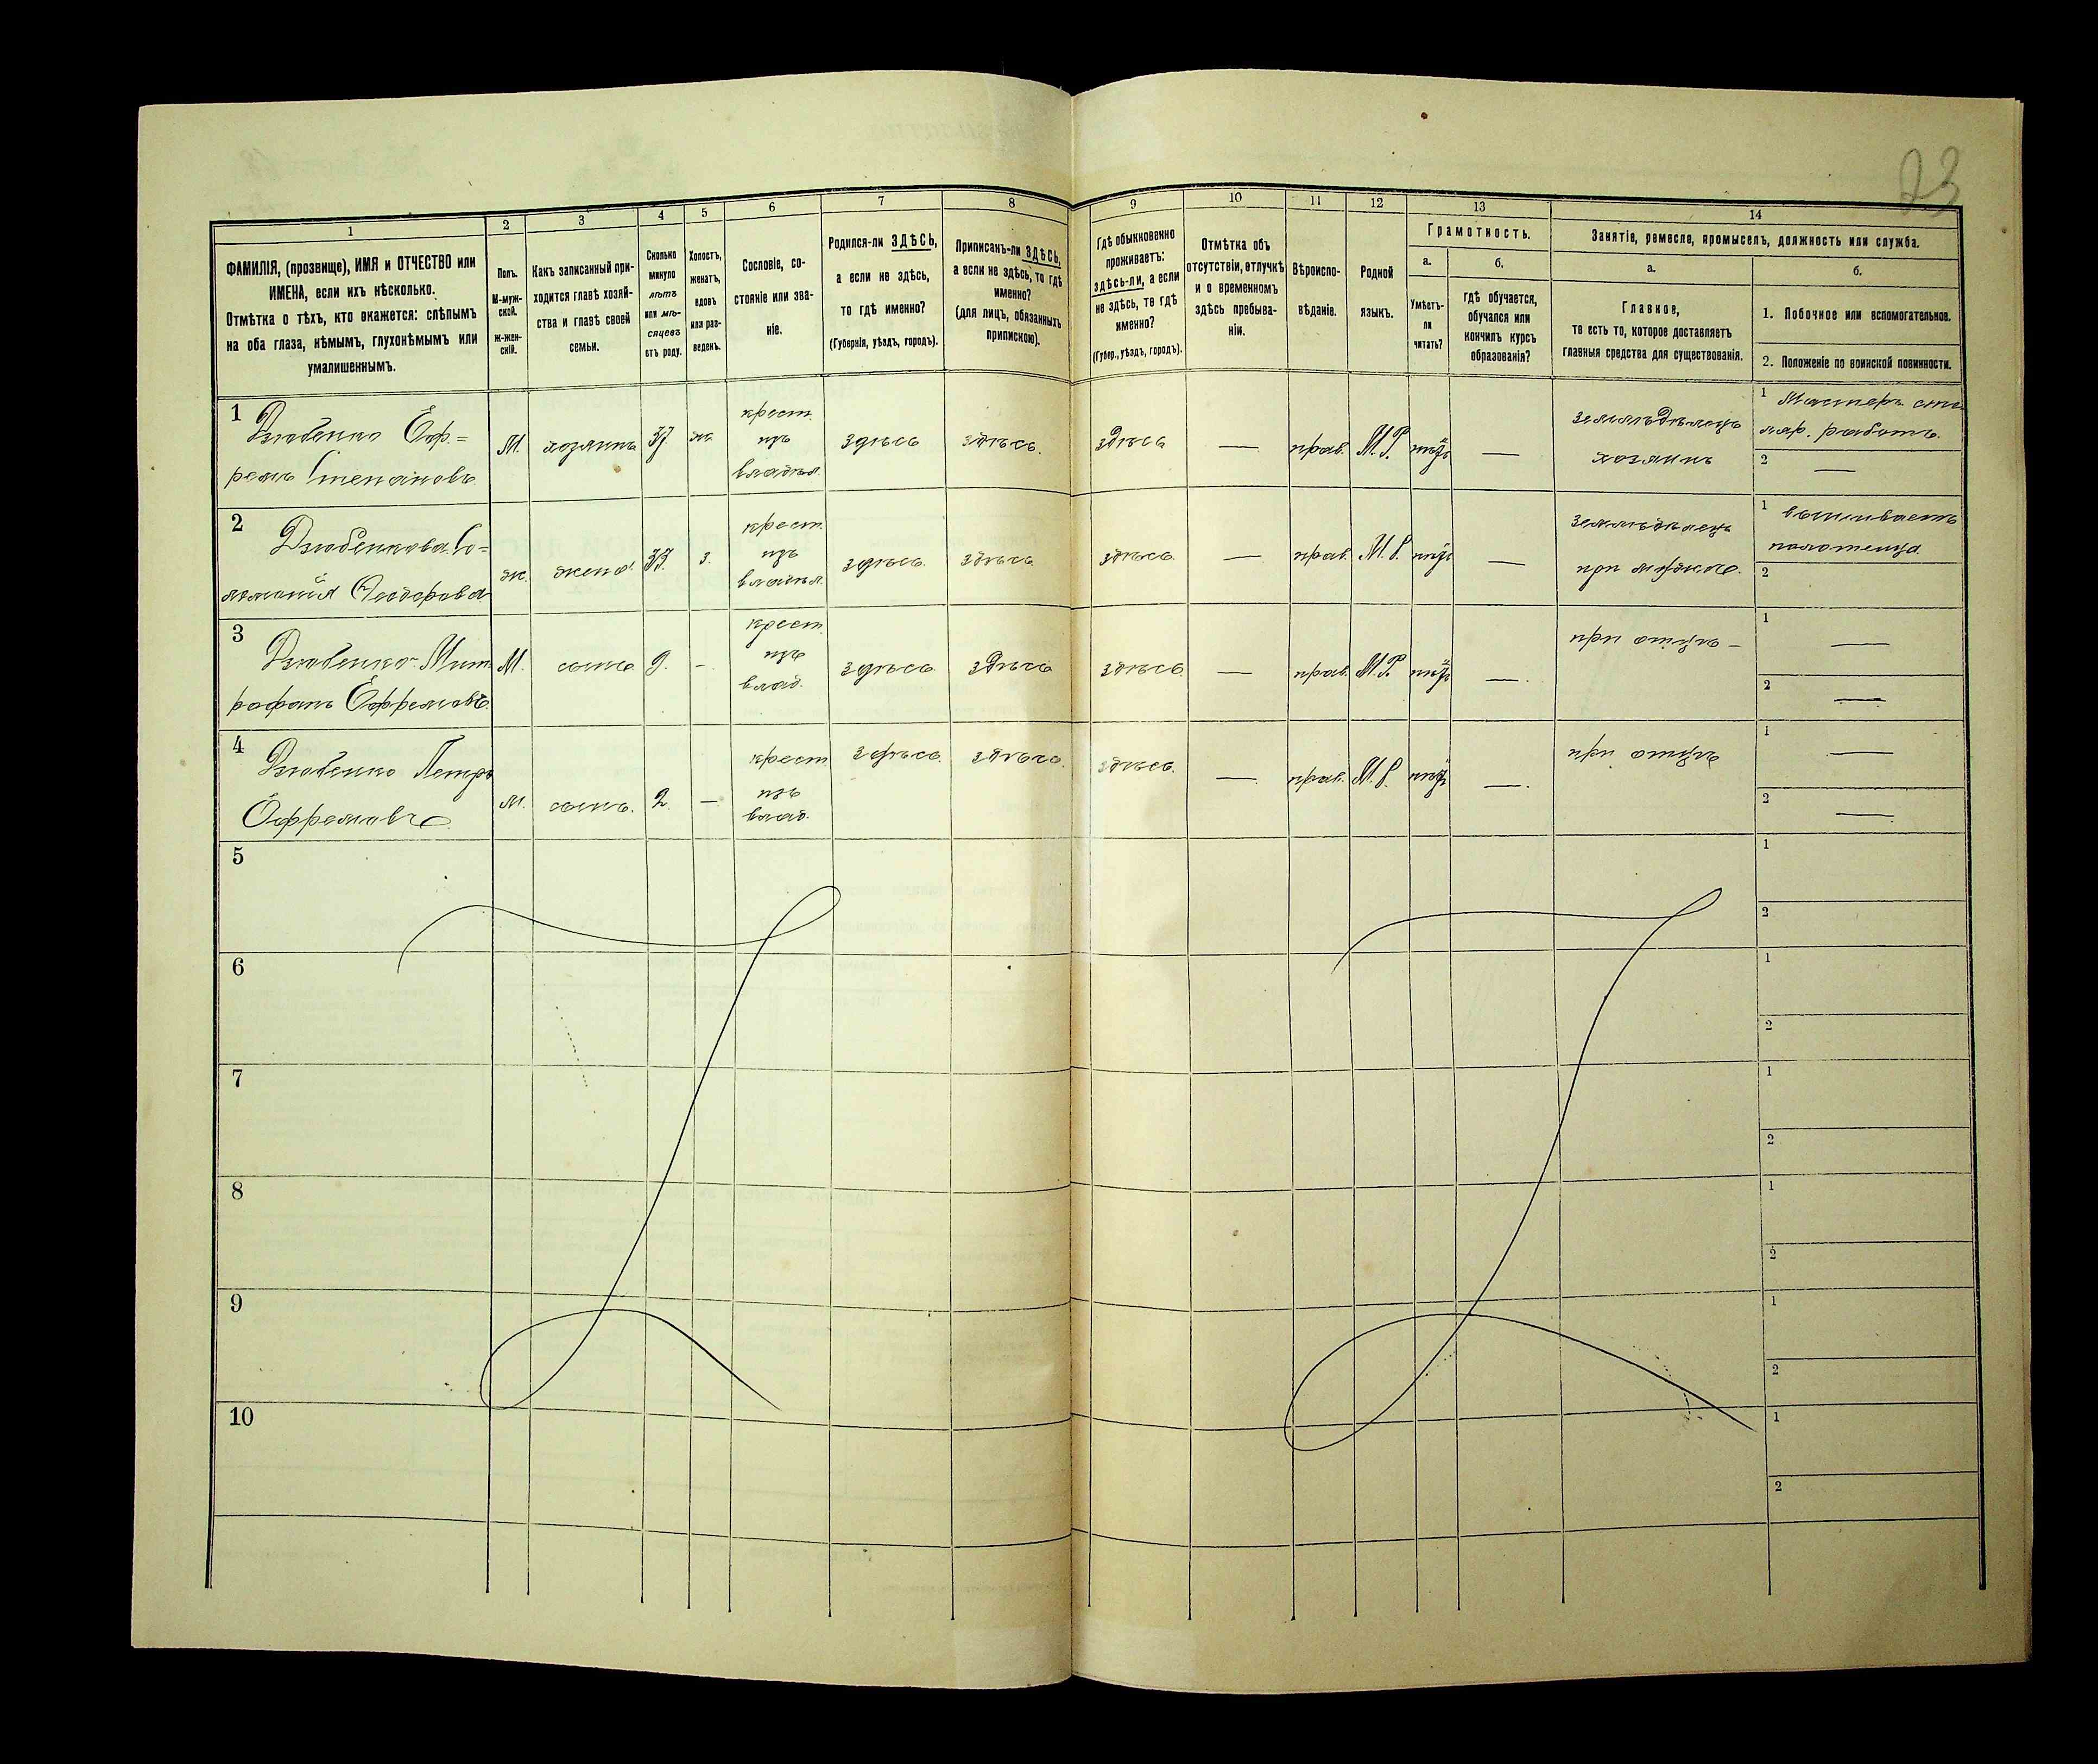 23
1
2
3
4
5
6
7
8
9
10
11
12
13
14
ФАМИЛІЯ, (прозвище), ИМЯ и ОТЧЕСТВО или
ИМЕНА, если ихъ нѣсколько.
Отмѣтка о тѣхъ, кто окажется: слѣпымъ
на оба глаза, нѣмымъ, глухонѣмымъ или
умалишеннымъ.
Полъ.
М-муж-
ской.
Ж-жен-
скій.
Какъ записанный при-
ходится главѣ хозяй-
ства и главѣ своей
семьи.
Сколько
минуло
лѣтъ
или мѣ-
сяцевъ
отъ роду.
Холостъ,
женатъ,
вдовъ
или раз-
веденъ.
Сословіе, со-
стояніе или зва-
ніе.
Родился-ли ЗДѢСЬ,
а если не здѣсь,
то гдѣ именно?
(Губернія, уѣздъ, городъ).
Приписанъ-ли ЗДѢСЬ,
а если не здѣсь, то гдѣ
именно?
(для лицъ, обязанныхъ
припискою).
Гдѣ обыкновенно
проживаетъ:
здѣсь-ли, а если
не здѣсь, то гдѣ
именно?
(Губер., уѣздъ, городъ).
Отмѣтка объ
отсутствіи, отлучкѣ
и о временномъ
здѣсь пребыва-
ніи.
Вѣроиспо-
вѣданіе.
Родной
языкъ.
Грамотность.
а.
Умѣетъ-
ли
читать?
б.
гдѣ обучается,
обучался или
кончилъ курсъ
образованія?
Занятіе, ремесло, промыселъ, должность или служба.
а.
Главное,
то есть то, которое доставляетъ
главныя средства для существованія.
б.
1. Побочное или вспомогательное.
2. Положеніе по воинской повинности.
1 Дзюбенко Еф-
ремъ Степановъ
М. хозяинъ 37 ж. крест. изъ владѣл. здѣсь здѣсь. здѣсь — прав. М.Р. —
земледѣлецъ
хозяинъ
1 Мастеръ сто
ляр. работъ.
2 —
2 Дзюбенкова Со-
ломонія Ѳеодорова
ж. жена 33. з. крест. изъ владѣл. здѣсь. здѣсь здѣсь. — прав. М.Р. —
земледѣлецъ
при мужѣ.
1 вышиваетъ
полотенца
2
3 Дзюбенко Мит
рофанъ Ефремовъ
М. сынъ 9. - крест. изъ влад. здѣсь здѣсь здѣсь — прав. М.Р. — .
при отцѣ -
1 —
2 —
4 Дзюбенко Петръ
Ефремовъ
М. сынъ. 2. — крест изъ влад. здѣсь. здѣсь. здѣсь. — прав. М.Р. — .
при отцѣ
1 —
2 —
5
1
2
6
1
2
7
1
2
8
1
2
9
1
2
10
1
2